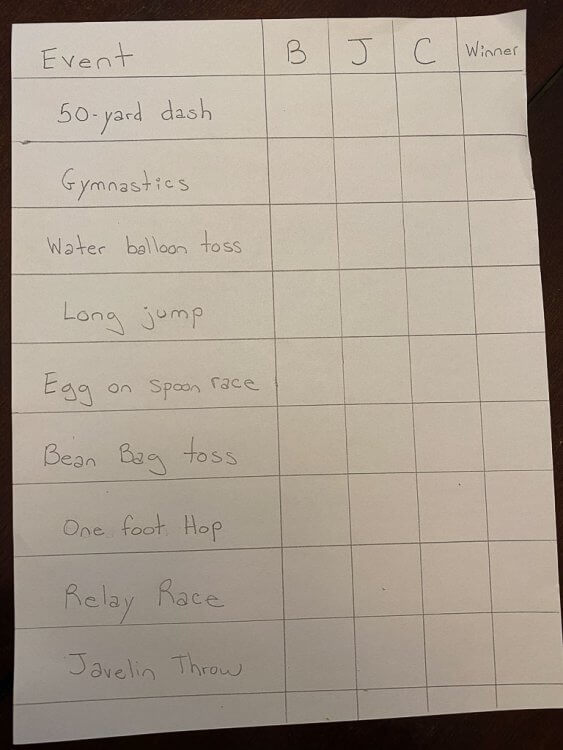 Event B J C Winner
50-yard dash
Gymnastics
Water balloon toss
Long jump
Egg on spoon race
Bean Bag toss
One foot Hop
Relay Race
Javelin Throw